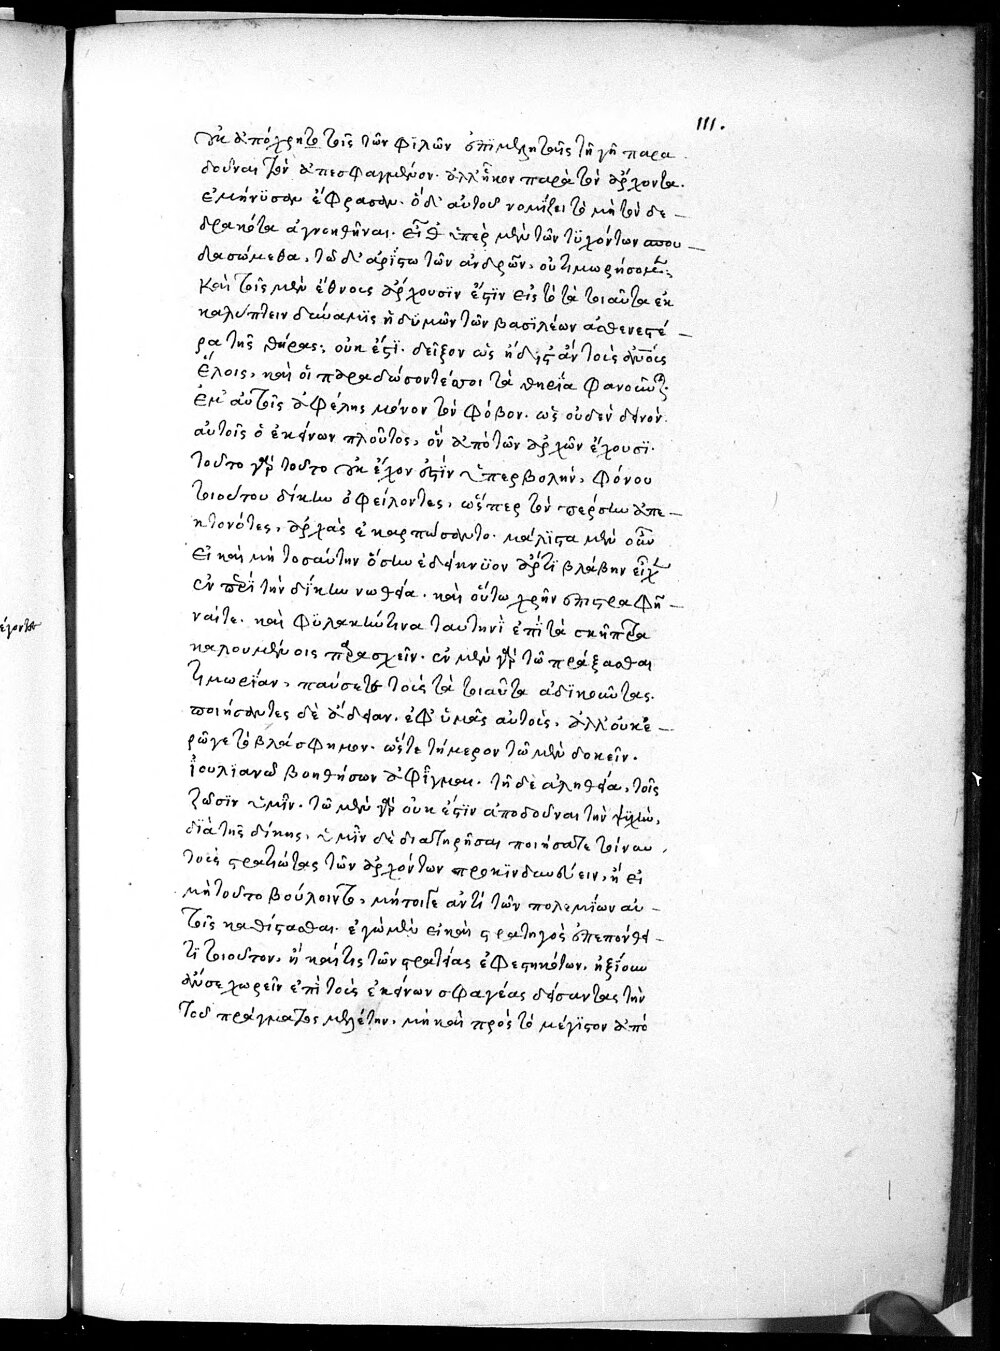 111.
οὐκ ἀπόχρη τὸ τοῖς τῶν φίλων ἐπιμεληταῖς τῇ γῇ παρα
δοῦναι τὸν ἀπεσφαγμένον. ἀλλ' ἧκον παρὰ τὸν ἄρχοντα.
ἐμήνυσαν ἔφρασαν. ὁ δ' αὐτοῦ νομίζει τὸ μὴ τὸν δε –
δρακότα ἀγνοηθῆναι. εἶθ' ὑπὲρ μὲν τῶν τυχόντων σπου –
δασώμεθα, τῷ δ' ἀρίστῳ τῶν ἀνδρῶν, οὐ τιμωρήσομεν;
Καὶ τοῖς μὲν ἔθνους ἄρχουσιν ἔστιν εἰς τὸ τὰ τοιαῦτα ἐκ
καλύπτειν δύναμις ἡ δ' ὑμῶν τῶν βασιλέων ἀσθενεστέ –
ρα τῆς θήρας; οὐκ ἔστι. δεῖξον ὡς ἡδ
ἕλοις, καὶ οἱ παραδώσοντές σοι τὰ θηρία φανοῦνται.
ἐὰν αὐτοῖς ἀφέλῃς μόνον τὸν φόβον. ὡς οὐδὲν δεινὸν.
αὐτοῖς ὁ ἐκείνων πλοῦτος, ὃν ἀπὸ τῶν ἀρχῶν ἔχουσι.
τοῦτο γὰρ τοῦτο οὐκ ἔχον ἐστὶν ὑπερβολὴν, φόνου
τοιούτου δίκην ὀφείλοντες, ὥσπερ τὸν πέρσην ἀπε –
κτονότες, ἀρχὰς ἐκαρπώσαντο. μάλιστα μὲν οὖν
εἰ καὶ μὴ τοσαύτην ὅσην ἐδείκνυον ἄρτι βλάβην εἶχεν
ἡ περὶ τὴν δίκην νωθεία. καὶ οὕτω χρῆν ἐπιστραφῆ –
ναί τε. καὶ φυλακήν τινα ταυτηνὶ ἐπὶ τὰ σκῆπτρα
καλουμένοις παρασχεῖν. ἐν μὲν γὰρ τῷ πράξασθαι
τιμωρίαν, παύσετε τοὺς τὰ τοιαῦτα ἀδικοῦντας.
ποιήσαντες δὲ ἄδειαν. ἐφ' ὑμᾶς αὐτοὺς, ἀλλ' οὐκ ἔ –
ρωγε τὸ βλάσφημον. ὥστε τήμερον τῷ μὲν δοκεῖν.
ἰουλιανῷ βοηθήσων ἀφῖγμαι. τῇ δὲ ἀληθείᾳ, τοῖς
ζῶσιν ὑμῖν. τῷ μὲν γὰρ οὐκ ἔστιν ἀποδοῦναι τὴν ψυχὴν,
διὰ τῆς δίκης, ὑμῖν δὲ διατηρῆσαι ποιήσατε τοίνυν,
τοὺς στρατιώτας τῶν ἀρχόντων προκινδυνεύειν, ἢ εἰ
μὴ τοῦτο βούλοιντο, μήτοιγε ἀντὶ τῶν πολεμίων αὐ –
τοῖς καθίστασθαι. ἐγὼ μὲν εἰ καὶ στρατηγὸς ἐπεπόνθει –
τι τοιοῦτον, ἢ καί τις τῶν στρατείας ἐφεστηκότων, ἠξίουν
ἄν σε χωρεῖν ἐπὶ τοὺς ἐκείνων σφαγέας δείσαντας τὴν
τοῦ πράγματος μελέτην, μὴ καὶ πρὸς τὸ μέγιστον ἀπὸ